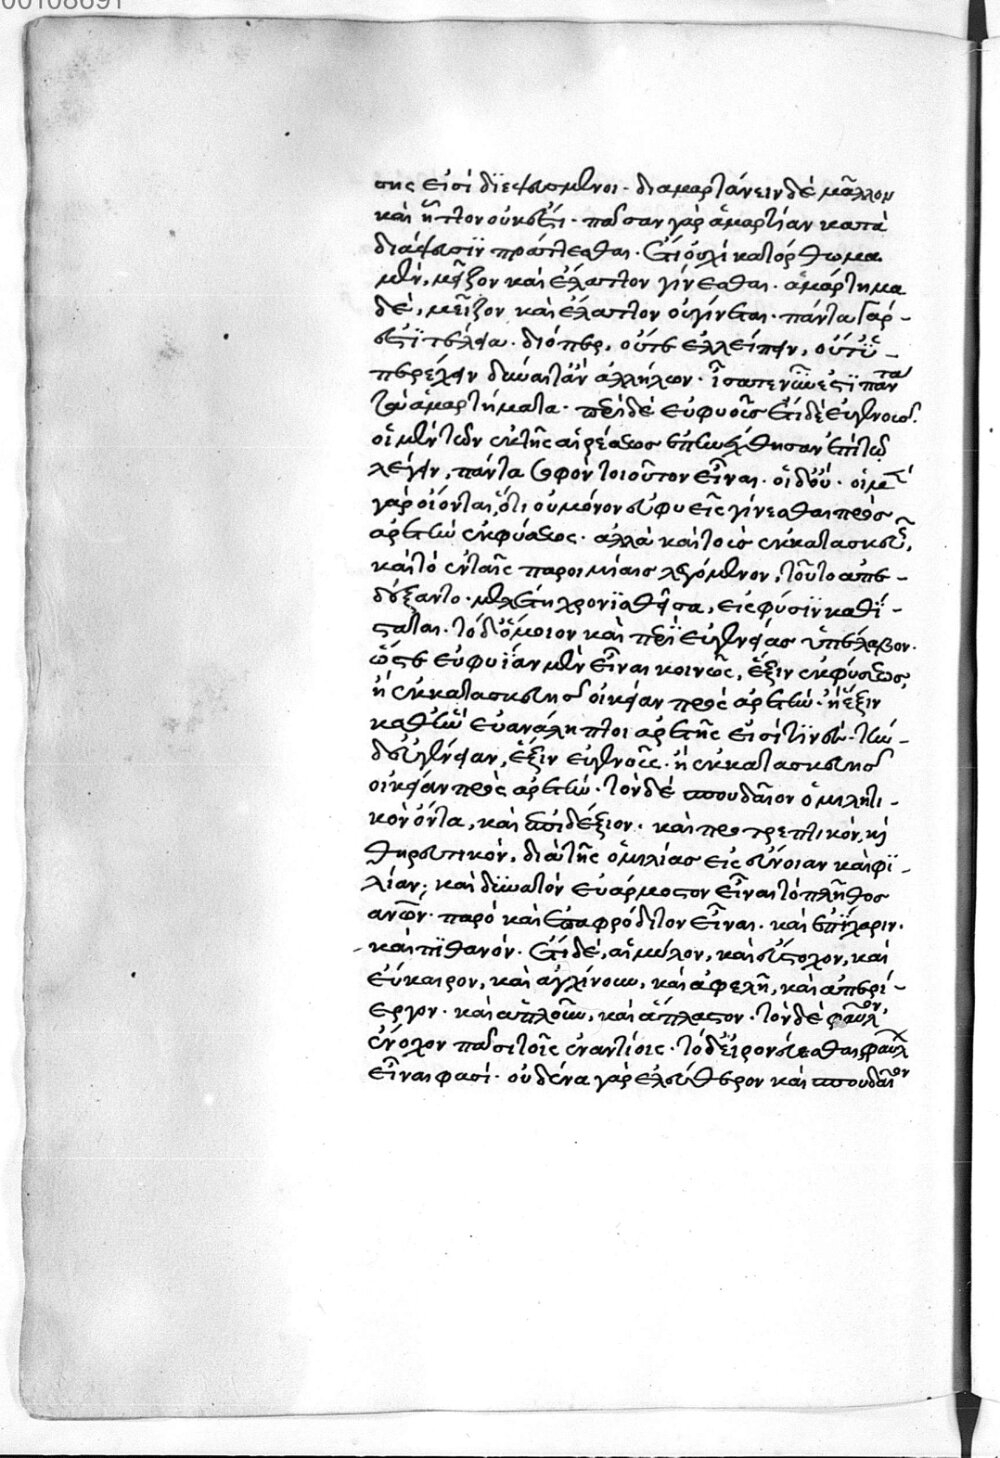 00108691
σης εἰσὶ διεψευσμένοι· διαμαρτάνειν δὲ μᾶλλον
καὶ ἧττον οὐκ ἔστι· πᾶσαν γὰρ ἁμαρτίαν κατὰ
διάψευσιν πράττεσθαι· ἔτι οὐχὶ κατόρθωμα
μὲν, μεῖζον καὶ ἔλαττον γίνεσθαι· ἁμάρτημα
δὲ, μεῖζον καὶ ἔλαττον οὐ γίνεται· πάντα γάρ
ἐστι τέλεια· διόπερ, οὔτε ἐλλείπειν, οὔτε ὑ-
περέχειν δύναιτ' ἂν ἀλλήλων· ἴσα πέν ὧν ἐστι πάντα
τὰ ἁμαρτήματα· περὶ δὲ εὐφυοῦς ἔτι δὲ εὐγενοῦς
οἱ μὲν τῶν ἐκ τῆς αἱρέσεως ἐπηνέχθησαν ἐπὶ τῷ
λέγειν, πάντα σοφὸν τοιοῦτον εἶναι· οἱ δ' οὔ· οἱ μὲν
γὰρ οἴονται, ὅτι οὐ μόνον εὐφυεῖς γίνεσθαι πρὸς
ἀρετὴν ἐκ φύσεως· ἀλλὰ καὶ τοὺς ἐκ κατασκευῆς,
καὶ τὸ ἐν ταῖς παροιμίαις λεγόμενον, τοῦτο ἀπε-
δέξαντο· μελέτη χρονισθεῖσα, εἰς φύσιν καθί-
σταται· τὸ δ' ὅμοιον καὶ περὶ εὐγενείας ὑπέλαβον·
ὥστε εὐφυΐαν μὲν εἶναι κοινῶς, ἕξιν ἐκ φύσεως,
ἢ ἐκ κατασκευῆς οἰκείαν πρὸς ἀρετὴν· ἢ ἕξιν
καθ' ἣν εὐανάληπτοι ἀρετῆς εἰσί τινες· τὴν
δ' εὐγένειαν, ἕξιν ἐκ γένους· ἢ ἐκ κατασκευῆς
οἰκείαν πρὸς ἀρετὴν· τὸν δὲ σπουδαῖον ὁμιλητι-
κὸν ὄντα, καὶ ἐπιδέξιον· καὶ προτρεπτικὸν, καὶ
θηρευτικὸν, διὰ τῆς ὁμιλίας εἰς εὔνοιαν καὶ φι-
λίαν, καὶ δυνατὸν εὐάρμοστον εἶναι τὸ πλῆθος
ἀνῶν· παρὸ καὶ ἐπαφρόδιτον εἶναι· καὶ ἐπίχαριν·
καὶ πιθανόν· ἔτι δὲ, αἱμύλον, καὶ εὔστοχον, καὶ
εὔκαιρον, καὶ ἀγχίνουν, καὶ ἀφελῆ, καὶ ἀπερί-
εργον· καὶ ἁπλοῦν, καὶ ἄπλαστον· τὸν δὲ φαῦλον,
ἔνοχον πᾶσι τοῖς ἐναντίοις· τὸ δ' εἰρωνεύεσθαι φαύλων
εἶναι φασί· οὐδένα γὰρ ἐλεύθερον καὶ σπουδαῖον